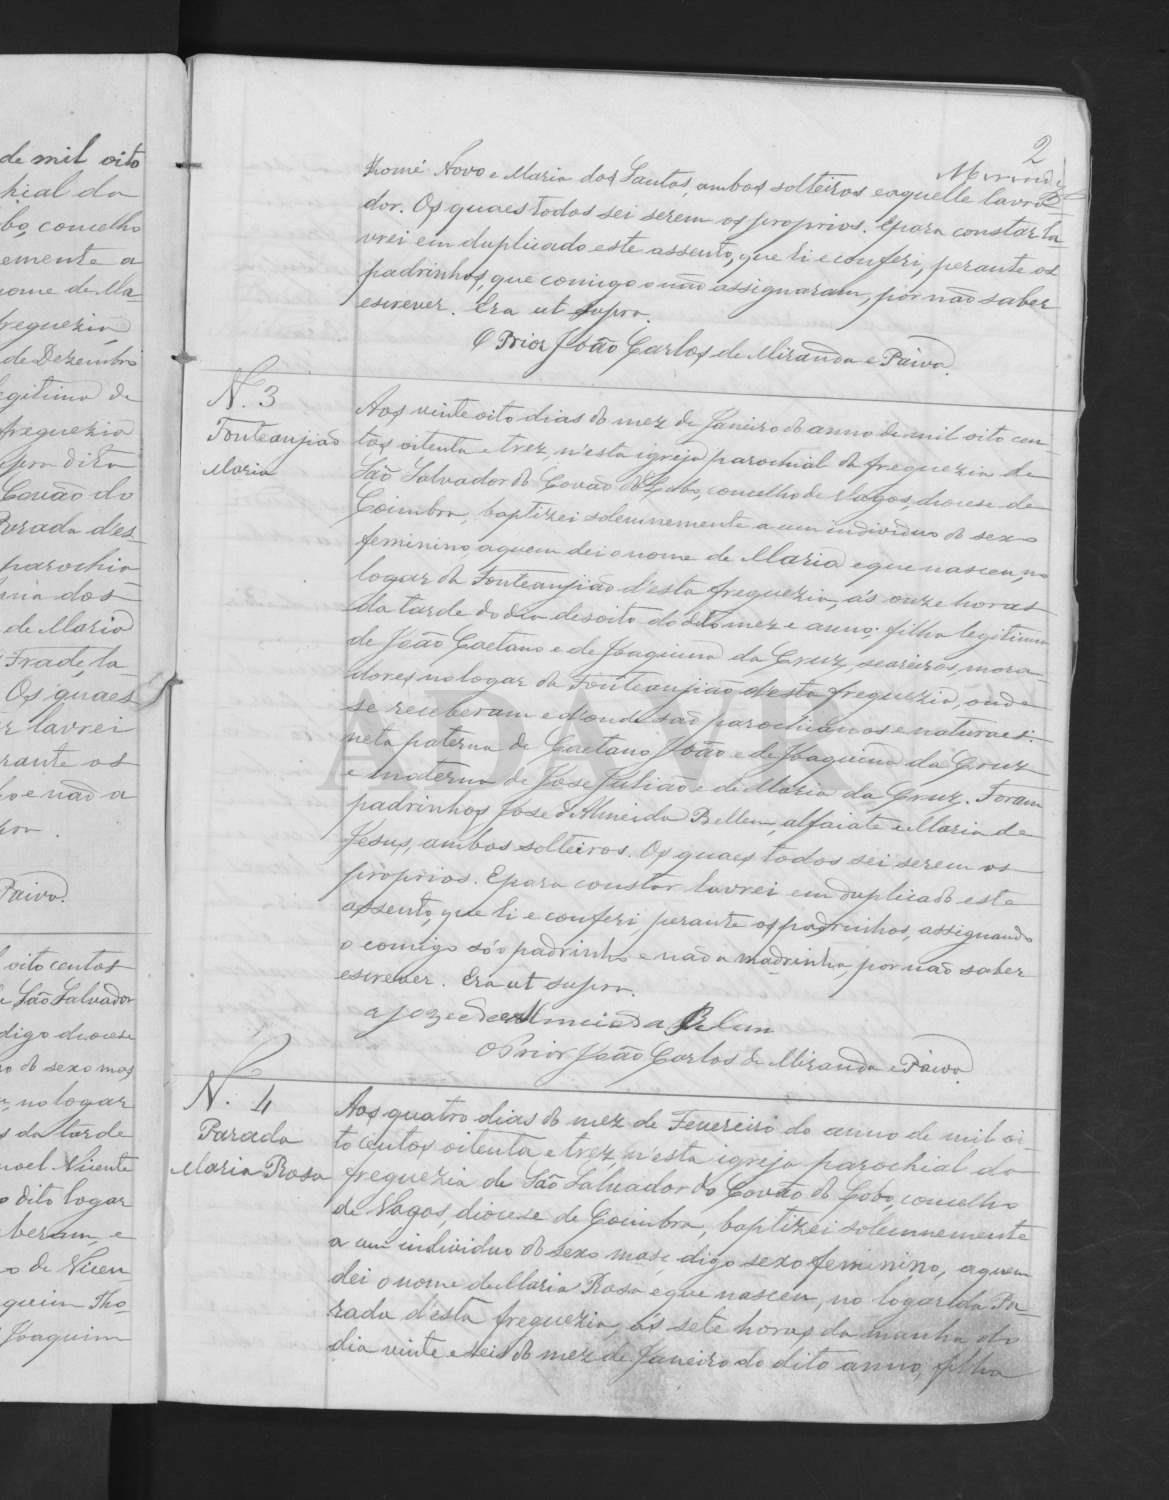 de mil oito
chial do
bo, concelho
emente a
nome de Ma
freguezia
de Dezembro
egitimo de
freguezia
supra dita
Covão do
Parada d'es
parochia
de Maria
Frade, la
Os quaes
r lavrei
rante os
o e não a
Paiva.
oito centos
e São Salvador
digo diocese
o do sexo mas
no logar
s da tarde
noel Vicente
o dito logar
beram, e
o de Vicen
quim Tho
Joaquim
2
Miranda
Thomé Novo e Maria dos Santos, ambos solteiros e aquelle lavra
dor. Os quaes todos sei serem os proprios. E para constar la
vrei em duplicado este assento, que li e conferi, perante os
padrinhos, que comigo o não assignaram, por não saber
escrever. Era ut supra.
O Prior João Carlos de Miranda e Paiva.
N. 3
Fonteanjião
Maria
Aos vinte oito dias do mez de Janeiro do anno de mil oito cen
tos oitenta e trez, n'esta igreja parochial da freguezia de
São Salvador do Covão do Lobo, concelho de Vagos, diocese de
Coimbra, baptizei solemnemente a um individuo do sexo
feminino, a quem dei o nome de Maria e que nasceu, no
logar da Fonteanjião d'esta freguezia, ás onze horas
da tarde do dia desoito do dito mez e anno; filha legitima
de João Caetano e de Joaquina da Cruz, seareiros, mora
dores no logar da Fonteanjião d'esta freguezia, onde
se receberam e d'onde são parochianos e naturaes:
neta paterna de Caetano João e de Joaquina da Cruz
e materna de José Julião e de Maria da Cruz. Foram
padrinhos José d'Almeida Bellem, alfaiate e Maria de
Jesus, ambos solteiros. Os quaes todos sei serem os
proprios. E para constar lavrei em duplicado este
assento, que li e conferi, perante os padrinhos, assignando
o comigo só o padrinho e não a madrinha, por não saber
escrever. Era ut supra.
a joze de Almeida Belem
O Prior João Carlos de Miranda e Paiva.
N. 4
Parada
Maria Rosa
Aos quatro dias do mez de Fevereiro do anno de mil oi
to centos oitenta e trez, n'esta igreja parochial da
freguezia de São Salvador do Covão do Lobo, concelho
de Vagos, diocese de Coimbra, baptizei solemnemente
a um individuo do sexo masc digo sexo feminino, a quem
dei o nome de Maria Rosa e que nasceu, no logar da Pa
rada d'esta freguezia, ás sete horas da manha do
dia vinte e seis do mez de Janeiro do dito anno, filha
ADAVR